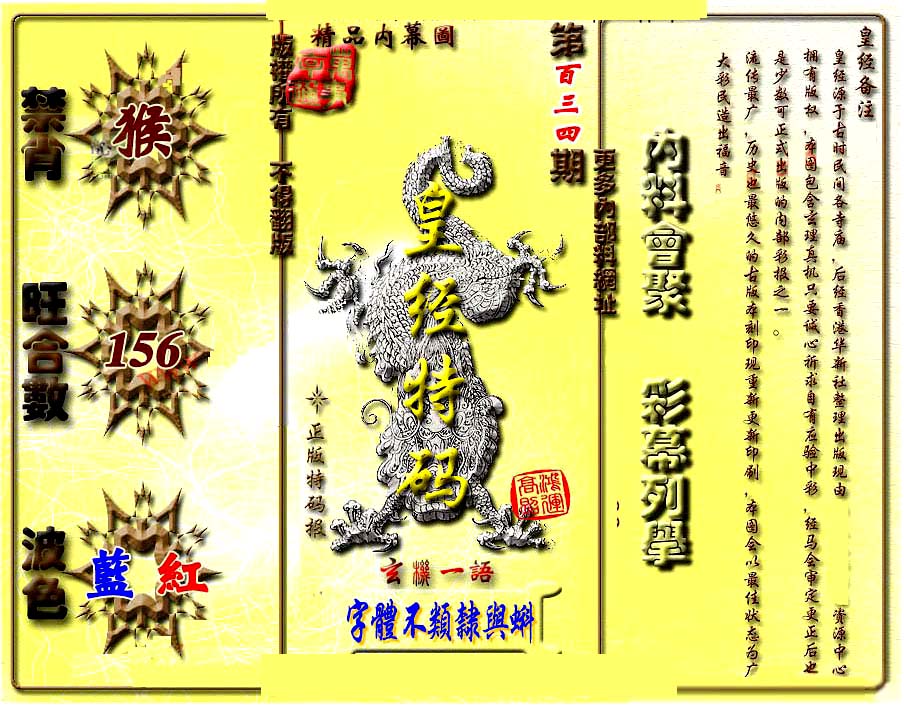 禁肖
猴
旺合數
156
波色
藍 紅
精品内幕圖
版權所有 不得翻版
第百三四期
更多内部料網址
皇经特码
正版特码报
鴻運高照
玄機一語
字體不類隸與蝌
内料會聚 彩幕列舉
皇经备注
皇经源于古时民间各寺庙，后经香港华新社整理出版现由 资源中心
拥有版权，本图包含玄理真机只要诚心祈求自有应验中彩，经马会审定更正后也
是少数可正式出版的内部彩报之一。
流传最广，历史也最悠久的古版本刻印现重新更新印刷，本图会以最佳状态为广
大彩民造出福音